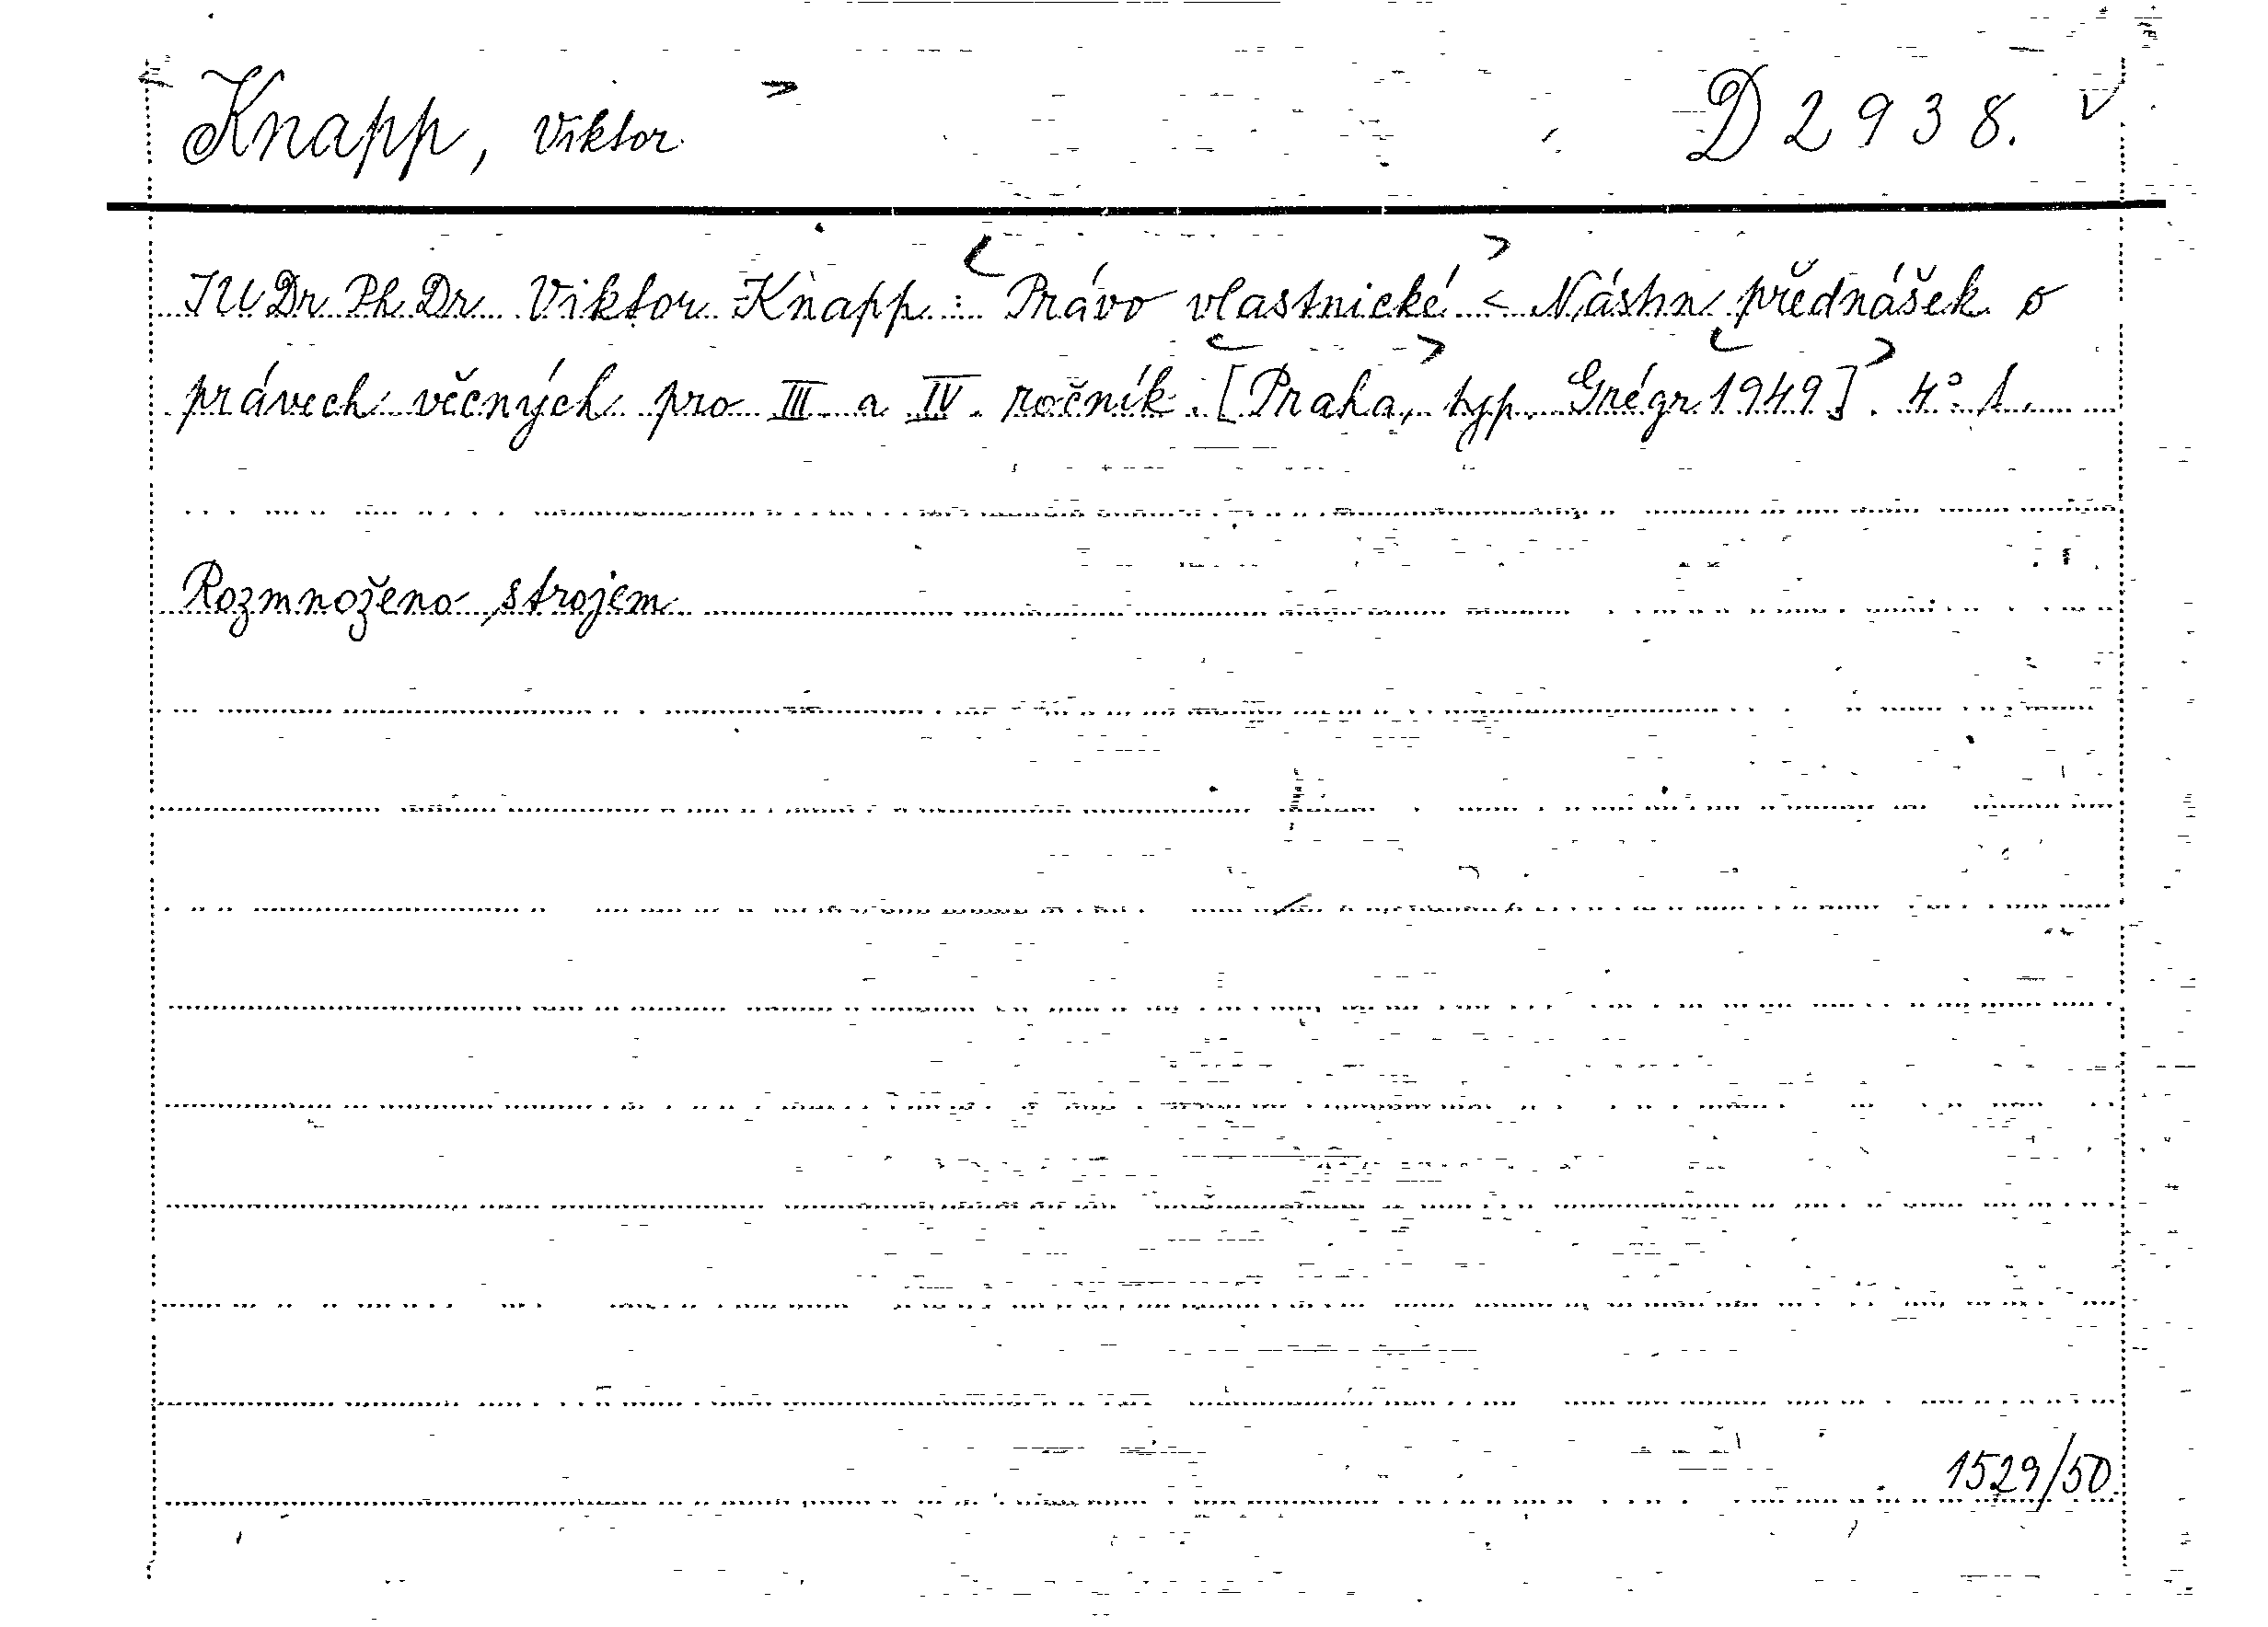 Knapp, Viktor D 2938.
JUDr PhDr Viktor Knapp: Právo vlastnické < Nástin přednášek o
právech věcných pro III a IV. ročník. [Praha, typ. Grégr 1949]. 4° 1.
Rozmnoženo strojem
1529/50